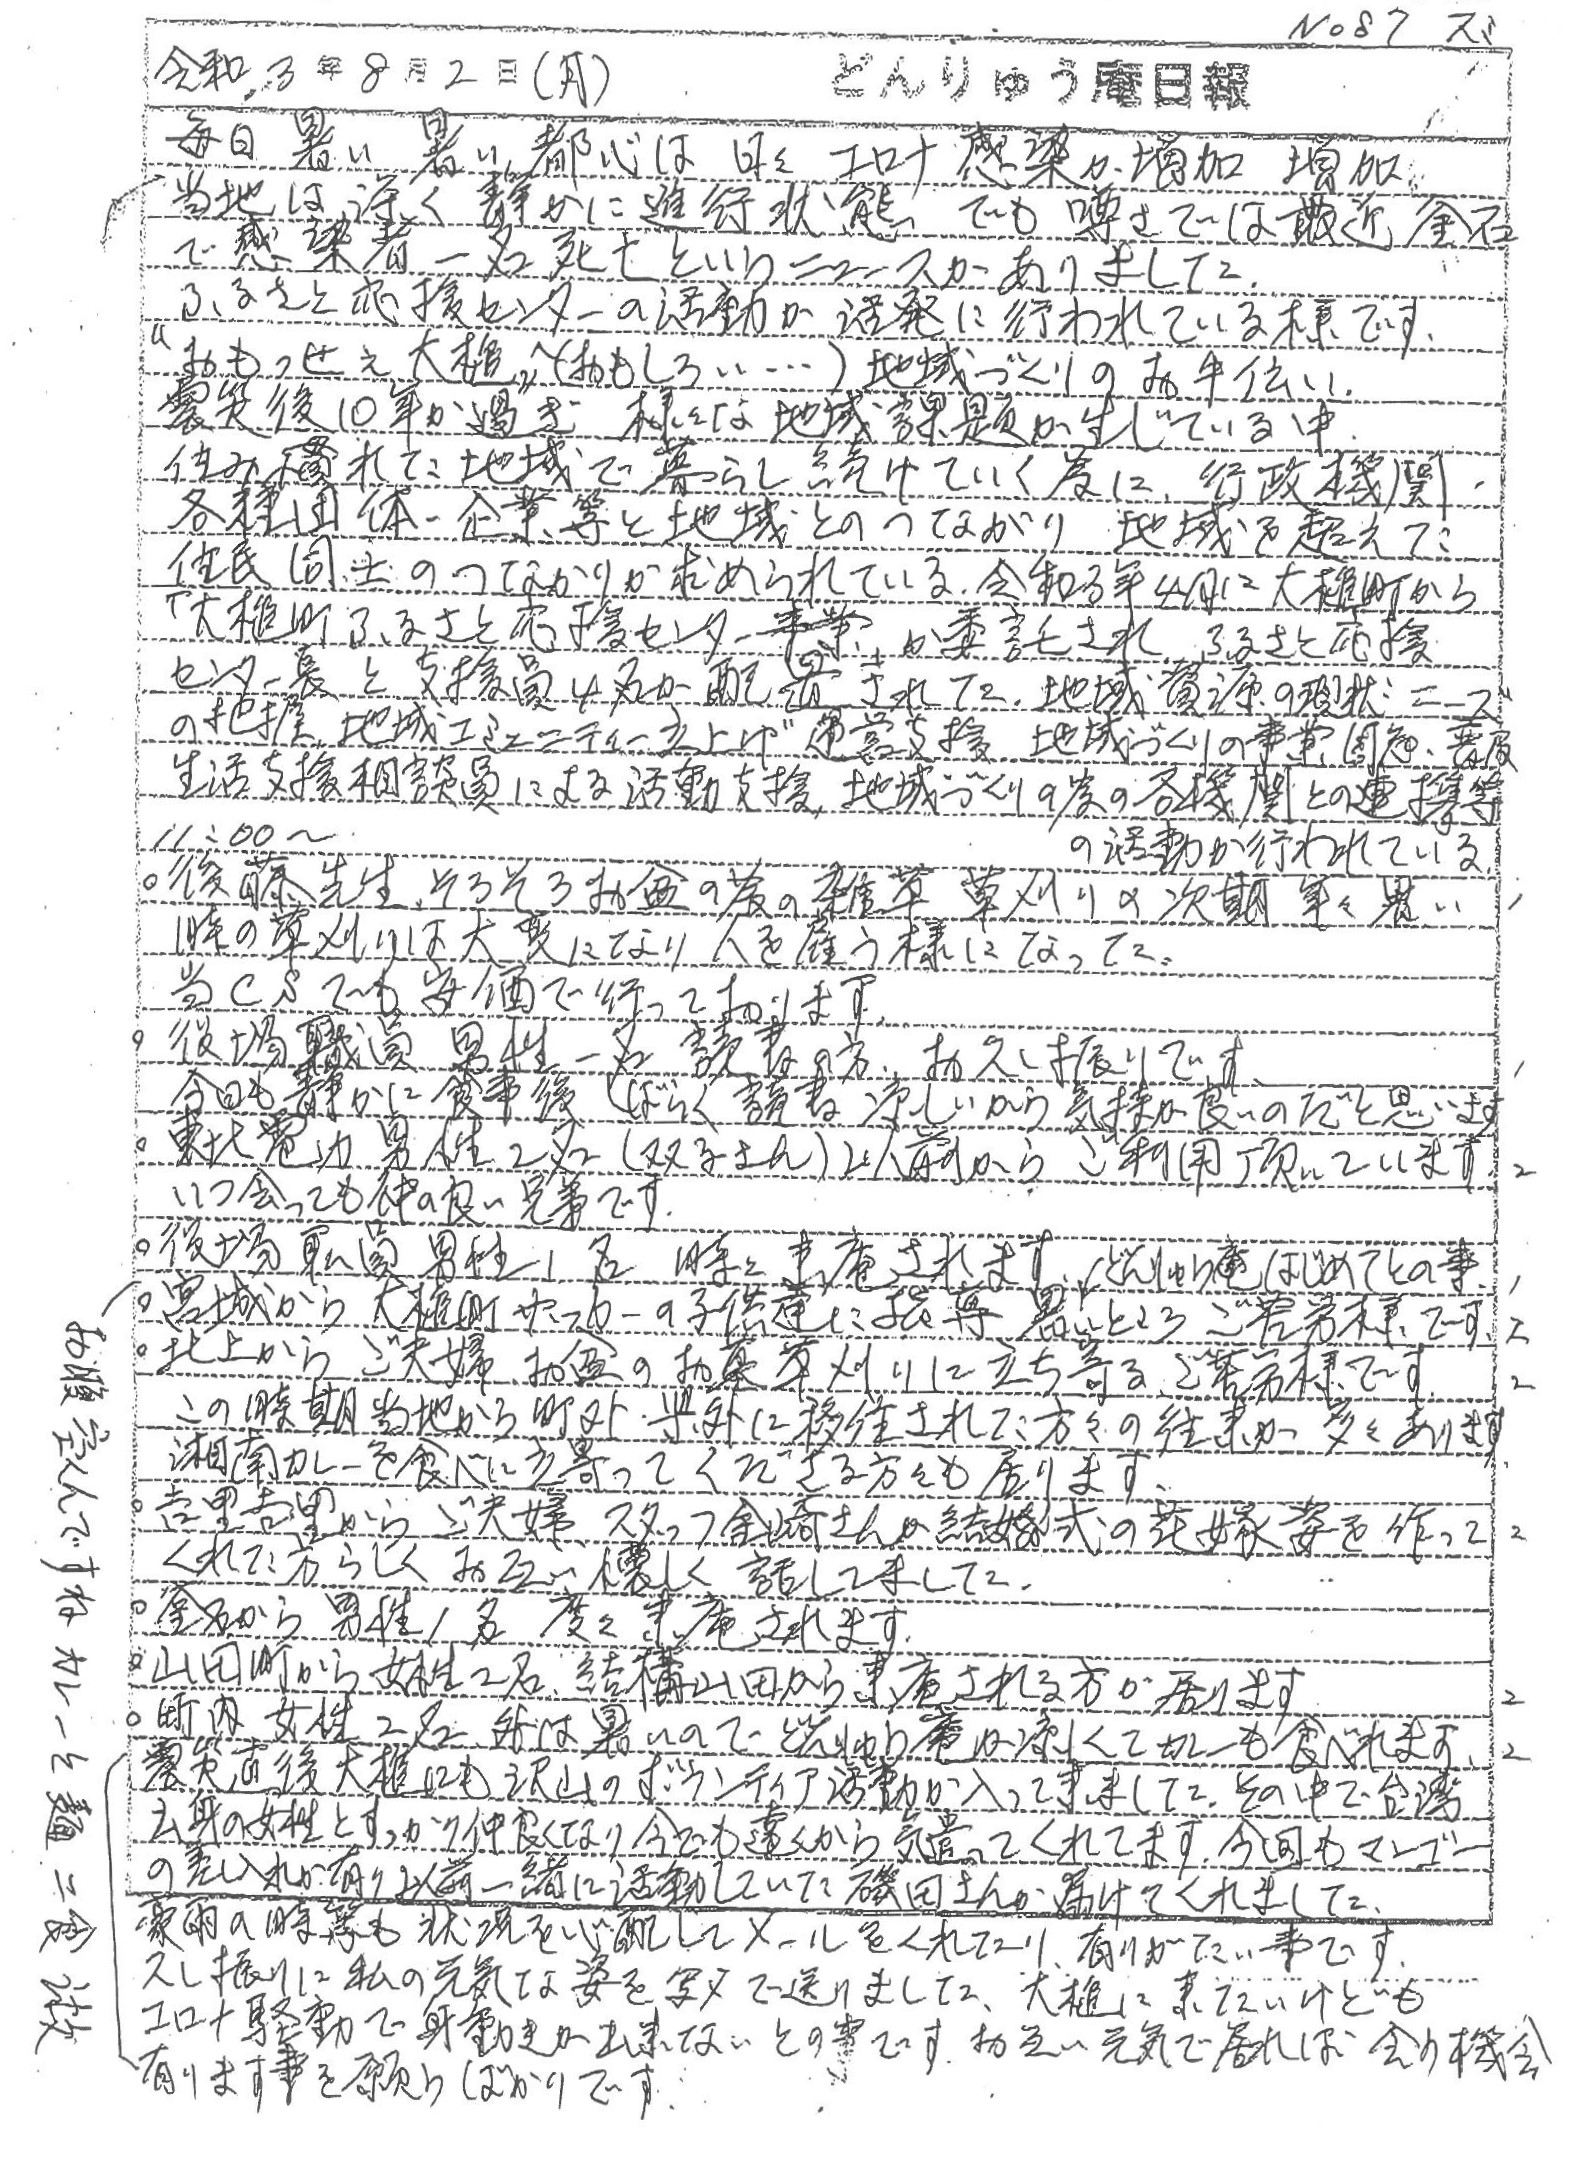 No87
令和 3 年 8 月 2 日 (月) どんりゅう庵日報
毎日 暑い 暑い 都心は 日々 コロナ 感染が増加 増加
当地は 静かに進行状態 でも 噂さでは最近 釜石
で感染者一名死亡というニュースがありました。
ふるさと応援センターの活動が 活発に行われている様です。
"おもっせぇ大槌"(おもしろい…) 地域づくりのお手伝い。
震災後10年が過ぎ 様々な 地域課題が生じている中.
住み慣れた地域で暮らし続けていく為に、行政機関・
各種団体・企業等と地域とのつながり 地域を超えた
住民同士のつながりが求められている。令和3年4月に大槌町から
「大槌町ふるさと応援センター事業」が委託され ふるさと応援
センター長と支援員4名が配置された. 地域資源の現状ニーズ
の把握 地域コミュニティー立上げ 運営支援 地域づくりの事業周知、
生活支援相談員による活動支援、地域づくりの為の各機関との連携等
の活動が行われている。
11:00〜
○後藤先生、そろそろお盆の為の雑草 草刈りの次期 年々暑い
時の草刈りは大変になり 人を雇う様になった。
当CSでも安価で行っております。
○役場職員 男性一名 読書の方、お久し振りです 1
今日も静かに食事後 しばらく読書 涼しいから気持が良いのだと思います
○東北電力 男性2名 (双子さん) 以前からご利用頂いています 2
いつ会っても仲の良い兄弟です。
○役場職員 男性1名 時々来庵されます。どんりゅう庵はじめてとの事、1
○宮城から 大槌町サッカーの子供達に指導 暑いところ ご苦労様です。
○北上から ご夫婦 お盆のお墓草刈りに立ち寄る ご苦労様です。 2
この時期当地から町外・県外に移住された方々の往来が多々あります
湘南カレーを食べに立寄ってくださる方々も居ります。
○吉里吉里から ご夫婦 スタッフ金崎さんが結婚式の花嫁姿を作って 2
くれた方らしく お互い懐しく話してました。
○釜石から 男性1名 度々来庵されます。
○山田町から女性2名、結構山田から来庵される方が居ります 2
○町内 女性2名 外は暑いので どんりゅう庵は涼しくてカレーも食べれます、2
震災直後大槌にも沢山のボランティア活動が入って来ました。その中で台湾
出身の女性とすっかり仲良くなり今でも遠くから気遣ってくれてます。今回もマンゴー
の差し入れが有り以前一緒に活動していた磯田さんが届けてくれました。
豪雨の時等も状況を心配してメールをくれたり、有りがたい事です。
久し振りに私の元気な姿を写メで送りました、大槌に来たいけども
コロナ騒動で身動きが出来ないとの事です。お互い元気で居れば 会う機会
有ります事を願うばかりです。
お腹空んですねカレーと麺二食